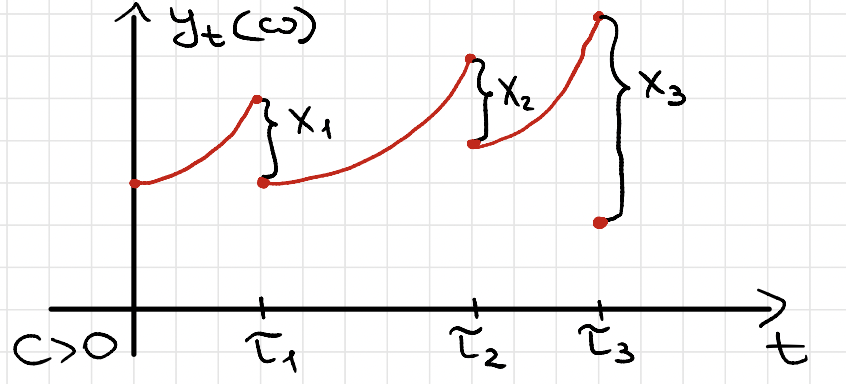 y_t(ω)
X_1
X_2
X_3
C>0
τ̃_1
τ̃_2
τ̃_3
t